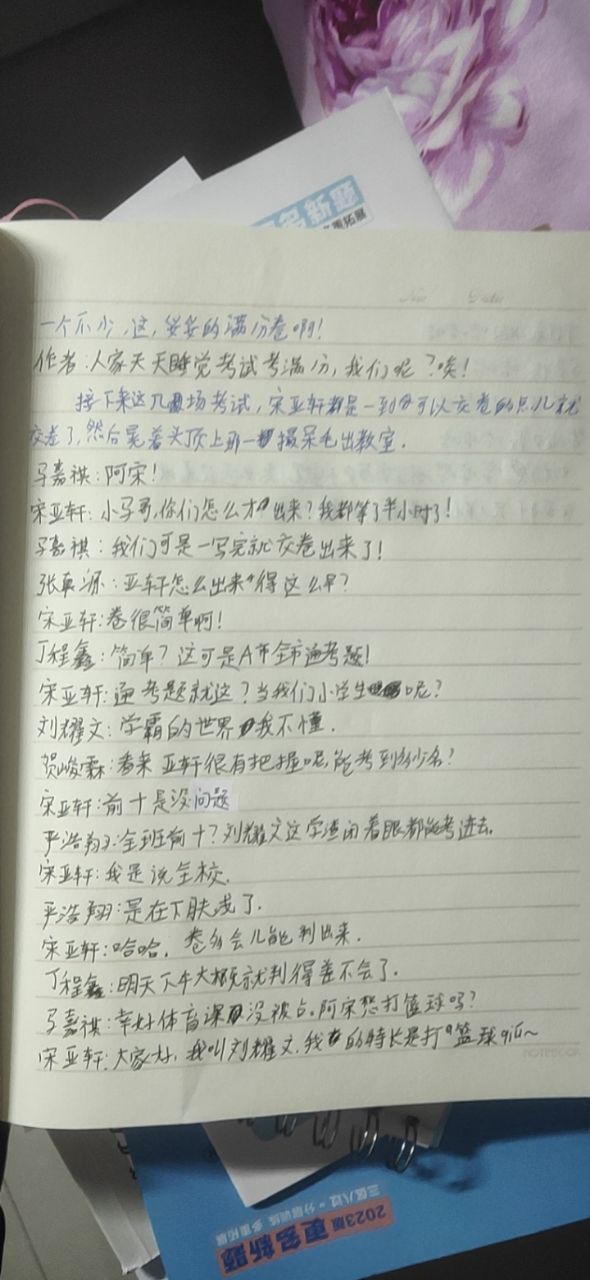 名新题
重拓展
No Date
一个不少，这，妥妥的满分卷啊！
作者：人家天天睡觉考试考满分，我们呢？唉！
接下来这几场考试，宋亚轩都是一到可以交卷的点儿就
交卷了，然后晃着头顶上那一撮呆毛出教室．
马嘉祺：阿宋！
宋亚轩：小马哥，你们怎么才出来？我都等了半小时了！
马嘉祺：我们可是一写完就交卷出来了！
张真源：亚轩怎么出来得这么早？
宋亚轩：卷很简单啊！
丁程鑫：简单？这可是A市全市通考题！
宋亚轩：通考题就这？当我们小学生呢？
刘耀文：学霸的世界我不懂．
贺峻霖：看来亚轩很有把握呢，能考到多少名？
宋亚轩：前十是没问题
严浩翔：全班前十？刘耀文这学渣闭着眼都能考进去．
宋亚轩：我是说全校．
严浩翔：是在下肤浅了．
宋亚轩：哈哈，卷多会儿能判出来．
丁程鑫：明天下午大概就判得差不会了．
马嘉祺：幸好体育课没被占．阿宋想打篮球吗？
宋亚轩：大家好，我叫刘耀文．我的特长是打篮球～
NOTEBOOK
2023版 更名新题
三区八过·分层训练 多重拓展